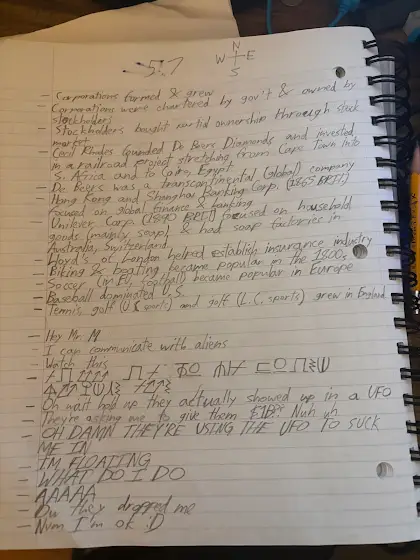 N
W E
S
5.7
- Corporations formed & grew
- Corporations were chartered by gov't & owned by
stockholders
- Stockholders bought partid ownership through stock
market
- Cecil Rhodes founded De Beers Diamonds and invested
in a railroad project stretching from Cape Town into
S. Africa and to Cairo, Egypt
- De Beers was a transcontinental (global) company
- Hong Kong and Shanghai Banking Corp. (1865 BRIT)
focused on global finance & banking
- Unilever Corp. (1890 BRIT) focused on household
goods (mainly soap) & had soap factories in
Australia, Switzerland,
- Lloyd's of London helped establish insurance industry
- Biking & boating became popular in the 1800s
- Soccer (in EU, football) became popular in Europe
- Baseball dominated U.S.
- Tennis, golf and golf (L.C. sports) grew in England
- Hey Mr. M
- I can communicate with aliens
- Watch this
- Oh wait hold up they actually showed up in a UFO
- They're asking me to give them Nuh uh
- OH DAMN THEY'RE USING THE UFO TO SUCK
ME IN
- I'M FLOATING
- WHAT DO I DO
- AAAAA
- Ow they dropped me
- Nvm I'm ok :D